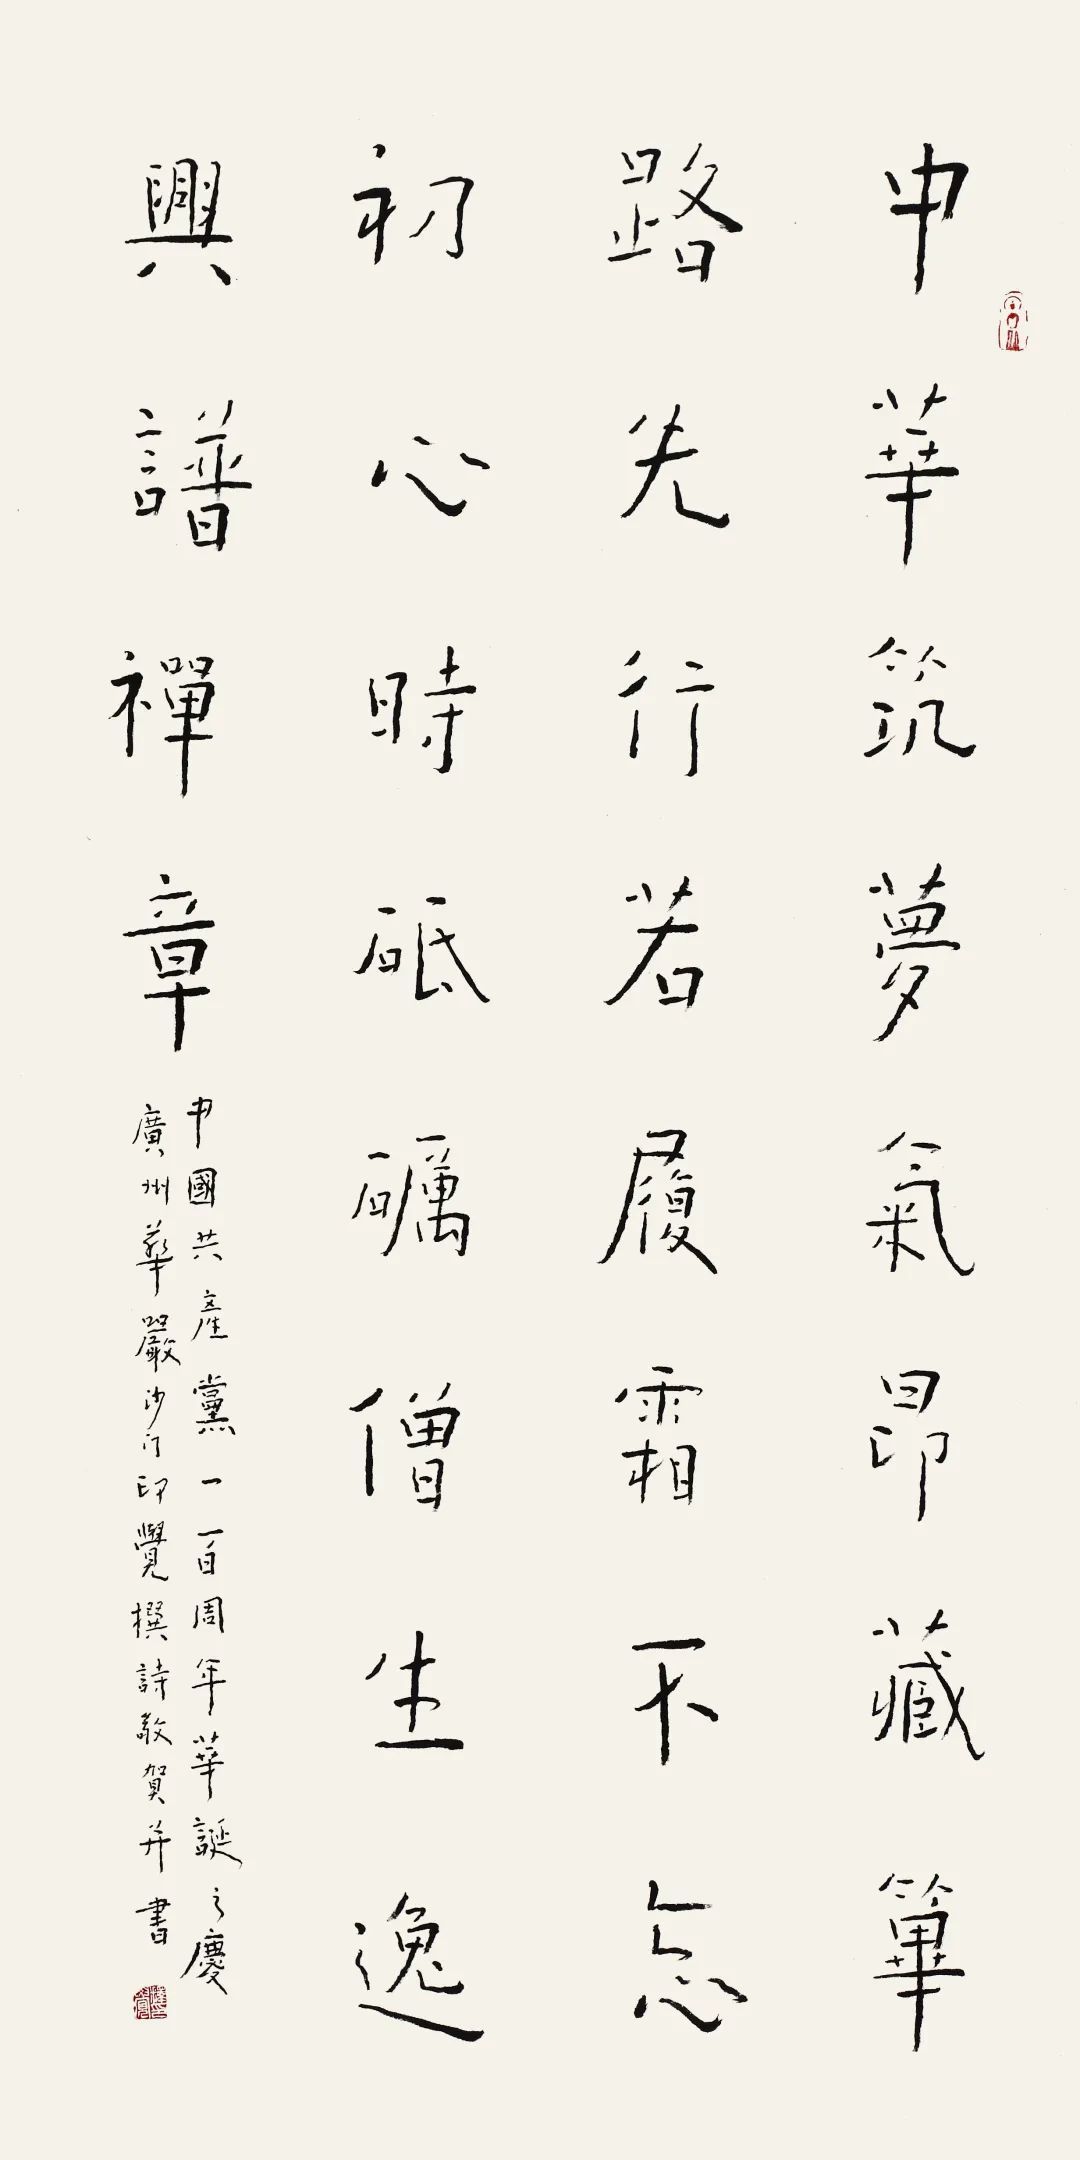 中華筑夢氣昂藏篳
路先行若履霜不忘
初心時砥礪僧生逸
興譜禪章
中國共產黨一百周年華誕之慶
廣州華嚴沙门印覺撰詩敬賀并書